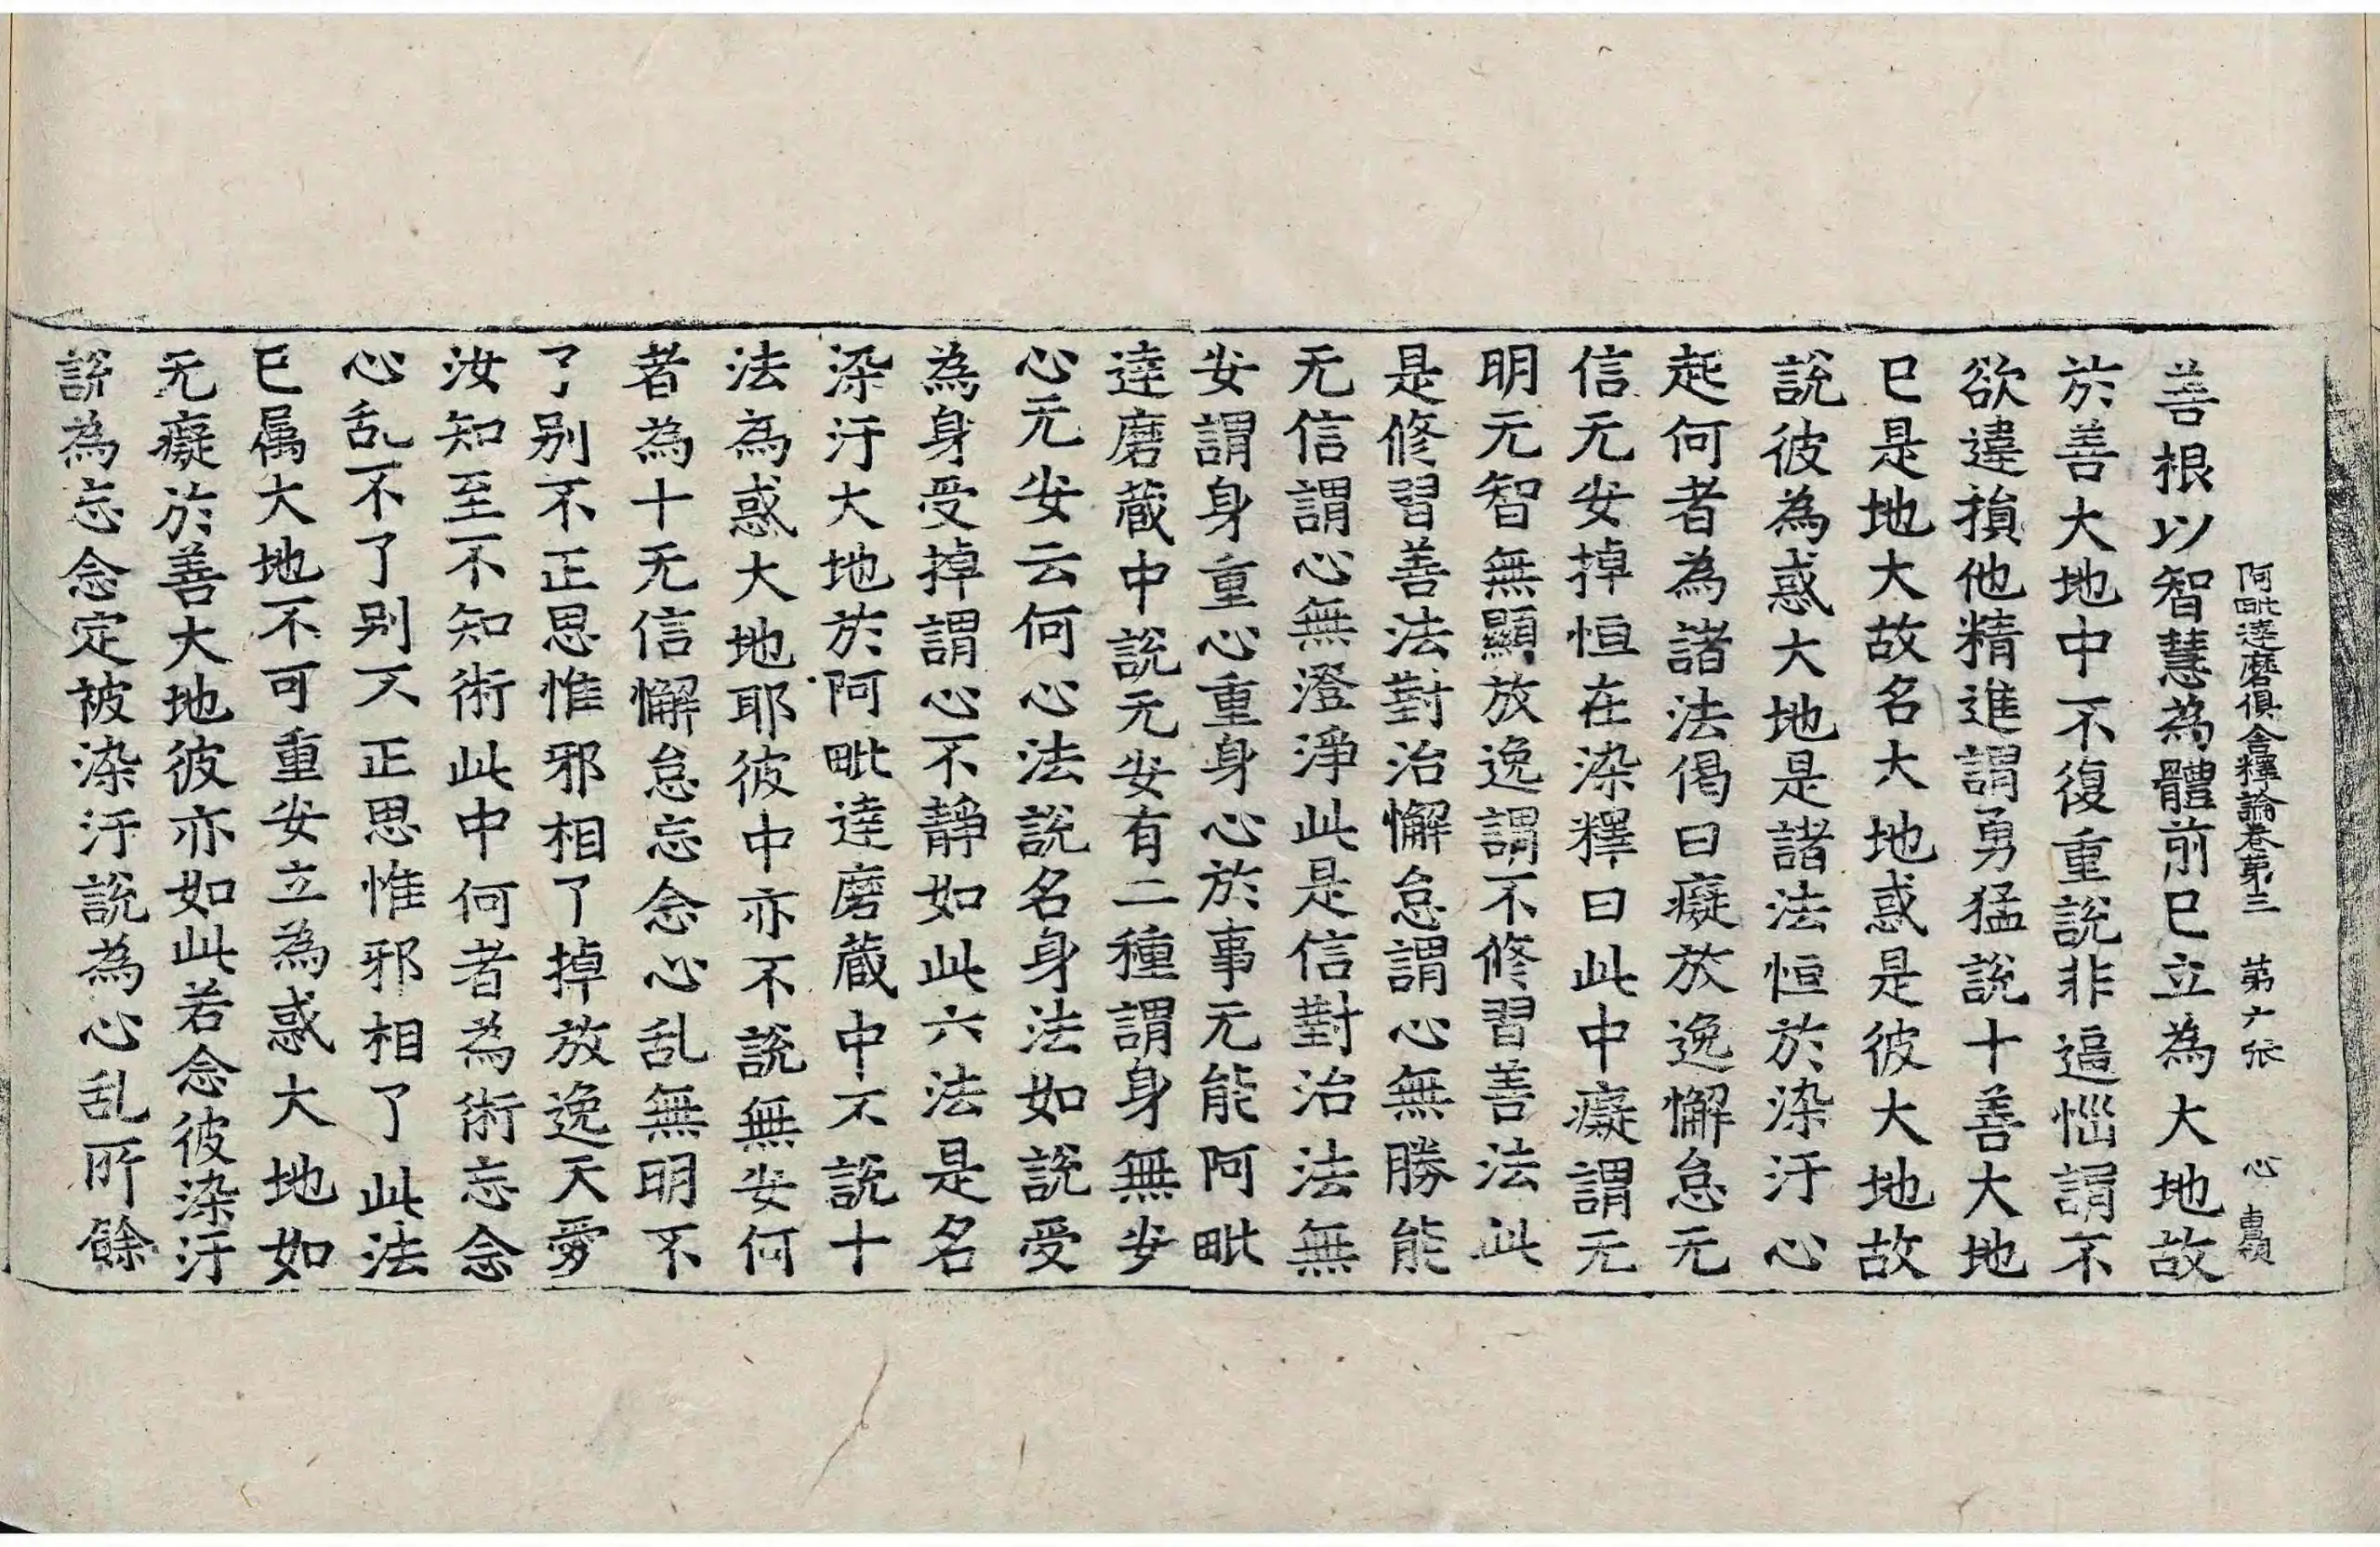 阿毗達磨俱舍釋論卷第三　第六张　心
善根以智慧為體前已立為大地故
於善大地中不復重說非逼惱謂不
欲違損他精進謂勇猛說十善大地
已是地大故名大地惑是彼大地故
說彼為惑大地是諸法恒於染汙心
起何者為諸法偈曰癡放逸懈怠无
信无安掉恒在染釋曰此中癡謂无
明无智無顯放逸謂不修習善法此
是修習善法對治懈怠謂心無勝能
无信謂心無澄淨此是信對治法無
安謂身重心重身心於事无能阿毗
達磨蔵中說无安有二種謂身無安
心无安云何心法說名身法如說受
為身受掉謂心不靜如此六法是名
染汙大地於阿毗達磨蔵中不說十
法為惑大地耶彼中亦不說無安何
者為十无信懈怠忘念心乱無明不
了别不正思惟邪相了掉放逸天愛
汝知至不知術此中何者為術忘念
心乱不了别不正思惟邪相了此法
已属大地不可重安立為惑大地如
无癡於善大地彼亦如此若念彼染汙
說為忘念定被染汙說為心乱所餘